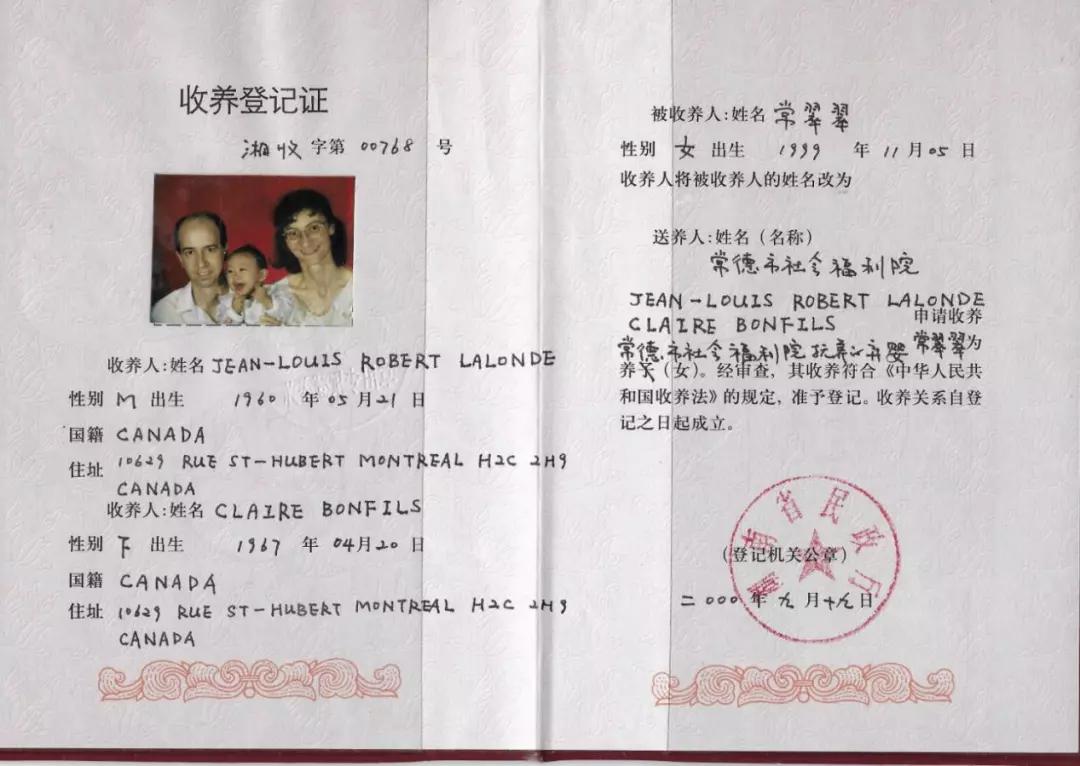 收养登记证
湘收字第 00768 号
收养人:姓名 JEAN-LOUIS ROBERT LALONDE
性别 M 出生 1960 年 05 月 21 日
国籍 CANADA
住址 10629 RUE ST-HUBERT MONTREAL H2C 2H9
CANADA
收养人:姓名 CLAIRE BONFILS
性别 F 出生 1967 年 04 月 20 日
国籍 CANADA
住址 10629 RUE ST-HUBERT MONTREAL H2C 2H9
CANADA
被收养人:姓名 常翠翠
性别 女 出生 1999 年 11 月 05 日
收养人将被收养人的姓名改为
送养人:姓名(名称)
常德市社会福利院
JEAN-LOUIS ROBERT LALONDE
CLAIRE BONFILS 申请收养
常德市社会福利院抚养的弃婴 常翠翠为
养(女)。经审查,其收养符合《中华人民共
和国收养法》的规定,准予登记。收养关系自登
记之日起成立。
湖南省民政厅
(登记机关公章)
二000年九月十九日